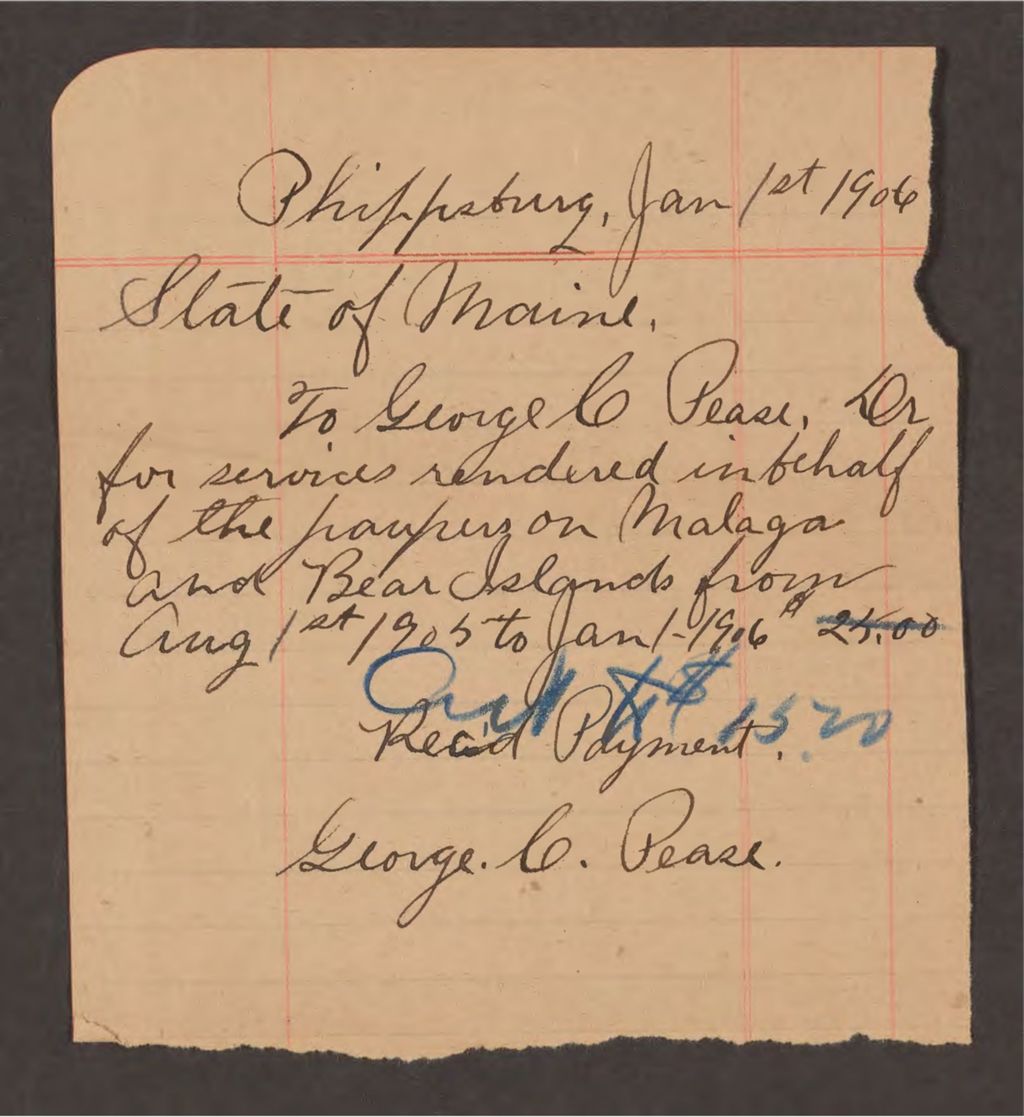 Phippsburg, Jan 1st 1906
State of Maine.
To George C Pease, Dr
for services rendered in behalf
of the paupers on Malaga
and Bear Islands from
Aug 1st 1905 to Jan 1-1906 $ 25.00
$ 15.20
Rec'd Payment.
George. C. Pease.